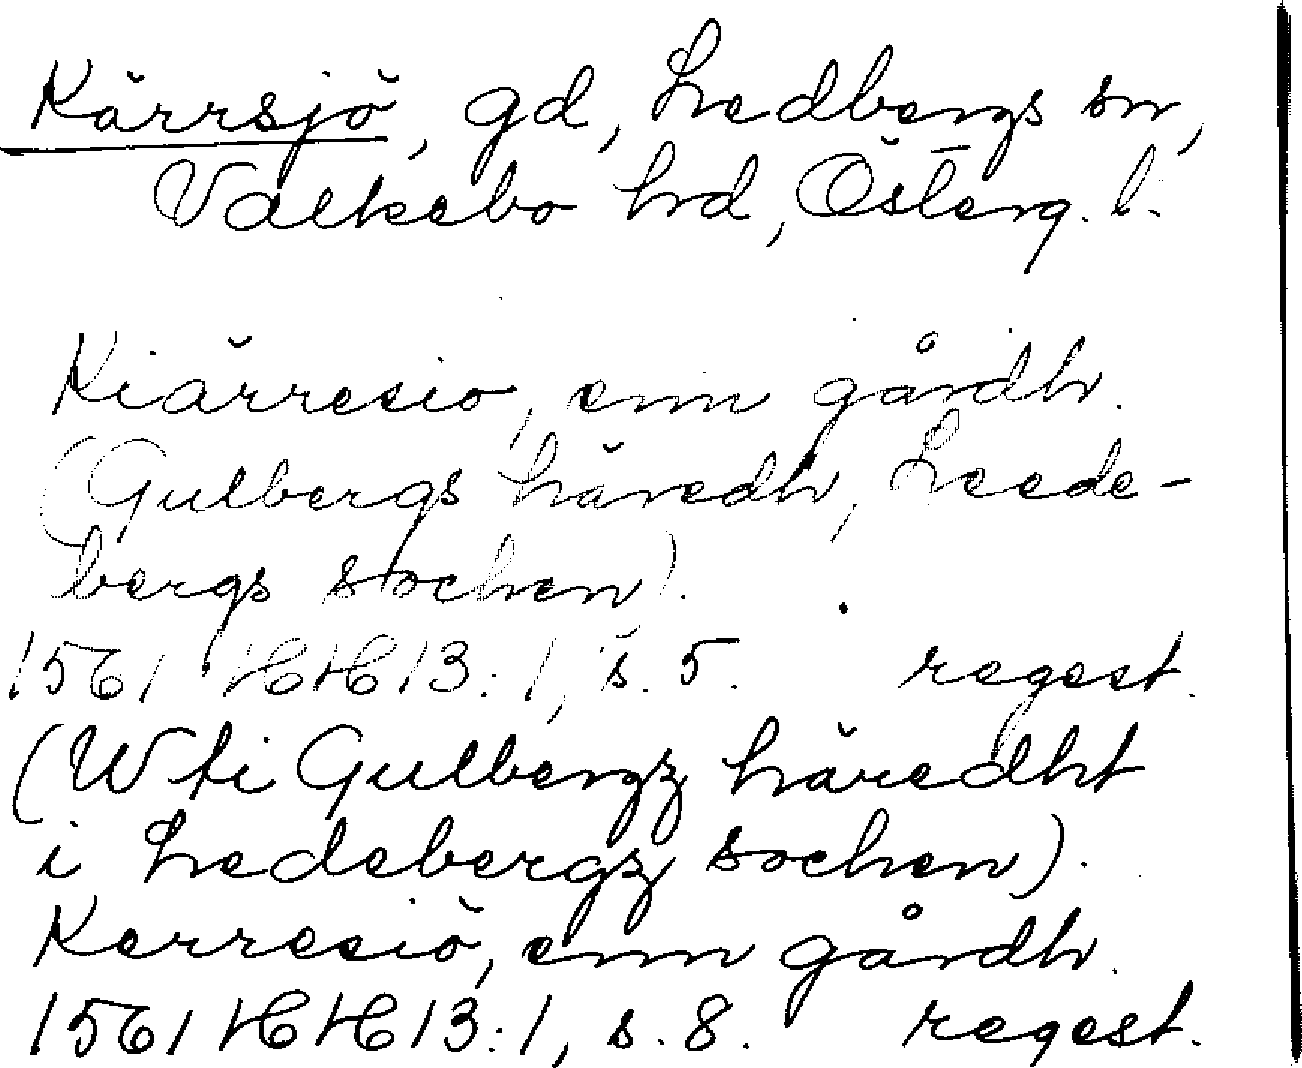 Kärrsjö, gd, Ledbergs sn,
Valkebo hd, Österg. l.
Kiärresio, enn gårdh.
(Gulbergs häredh, Leede-
bergs sochen).
1561 HH 13:1, s. 5. regest.
(Wti Gulbergz häredht
i Ledebergz sochen).
Kerresiö, enn gårdh.
1561 HH 13:1, s. 8. regest.